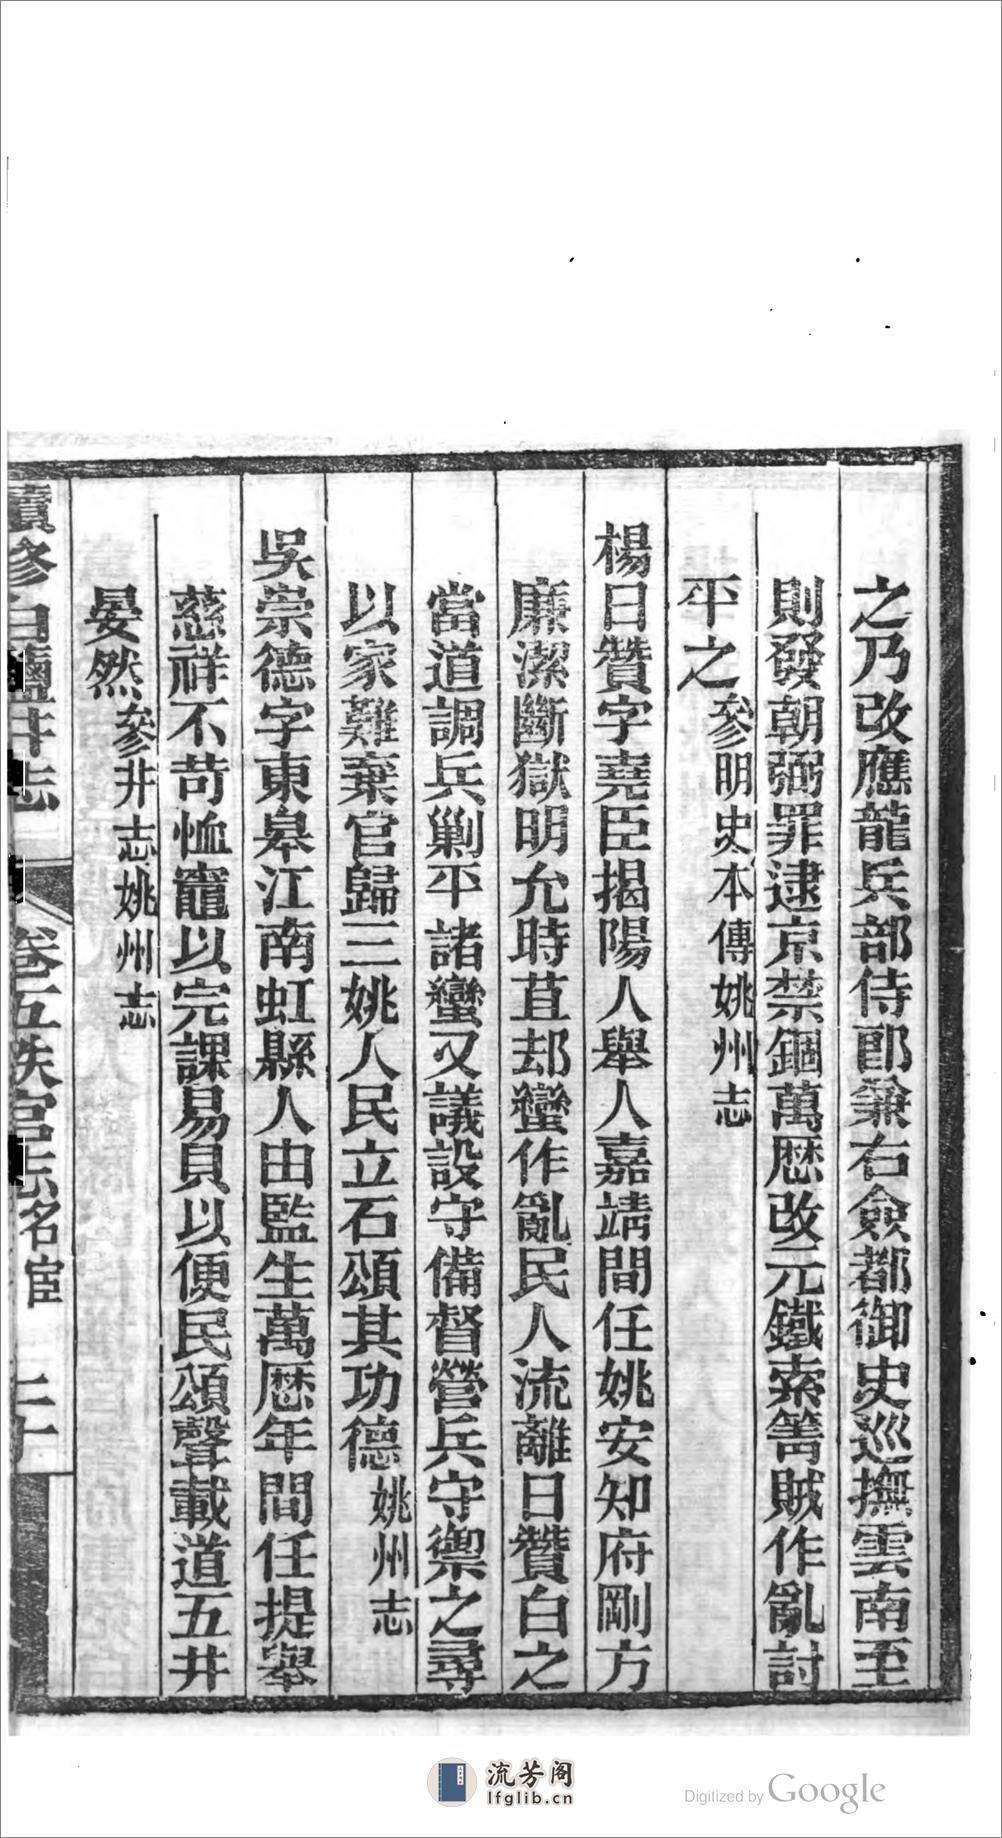 之乃改應龍兵部侍郎兼右僉都御史巡撫雲南至
則發朝弼罪逮京禁錮萬歴改元鐵索箐賊作亂討
平之參明史本傳姚州志
楊日贊字堯臣揭陽人舉人嘉靖間任姚安知府剛方
廉潔斷獄明允時苴却蠻作亂民人流離日贊白之
當道調兵剿平諸蠻又議設守備督營兵守禦之尋
以家難棄官歸三姚人民立石頌其功德姚州志
吳崇德字東皋江南虹縣人由監生萬歴年間任提舉
慈祥不苛恤竈以完課易貝以便民頌聲載道五井
晏然參井志姚州志
續修白鹽井志 卷五 秩官志名宦 二十
流芳阁
lfglib.cn
Digitized by Google